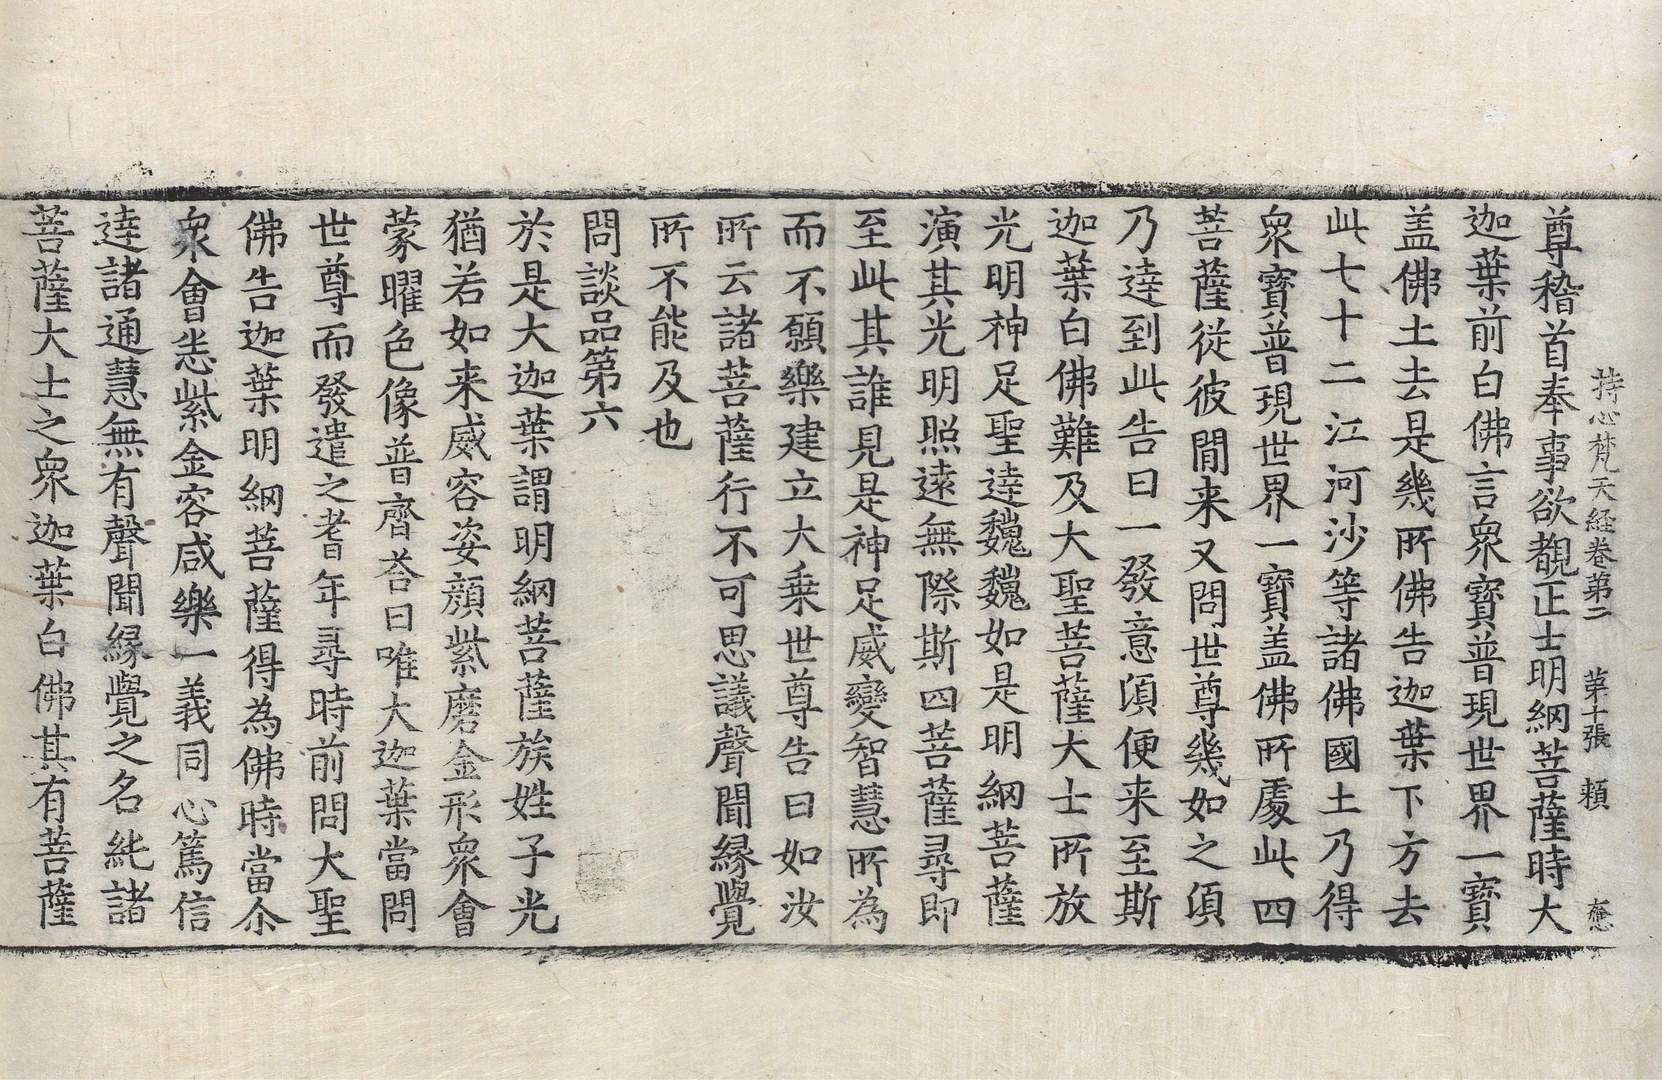 持心梵天経卷第二 第十張 頼
尊稽首奉事欲覩正士明網菩薩時大
迦葉前白佛言衆寶普現世界一寶
盖佛土去是幾所佛告迦葉下方去
此七十二江河沙等諸佛國土乃得
衆寶普現世界一寶盖佛所處此四
菩薩從彼間来又問世尊幾如之湏
乃達到此告曰一發意湏便来至斯
迦葉白佛難及大聖菩薩大士所放
光明神足聖達巍巍如是明網菩薩
演其光明照遠無際斯四菩薩尋即
至此其誰見是神足威變智慧所為
而不願樂建立大乗世尊告曰如汝
所云諸菩薩行不可思議聲聞縁覺
所不能及也
問談品第六
於是大迦葉謂明網菩薩族姓子光
猶若如来威容姿顔紫磨金形衆會
蒙曜色像普齊荅曰唯大迦葉當問
世尊而發遣之耆年尋時前問大聖
佛告迦葉明網菩薩得為佛時當尒
衆會恙紫金容咸樂一義同心篤信
達諸通慧無有聲聞縁覺之名純諸
菩薩大士之衆迦葉白佛其有菩薩